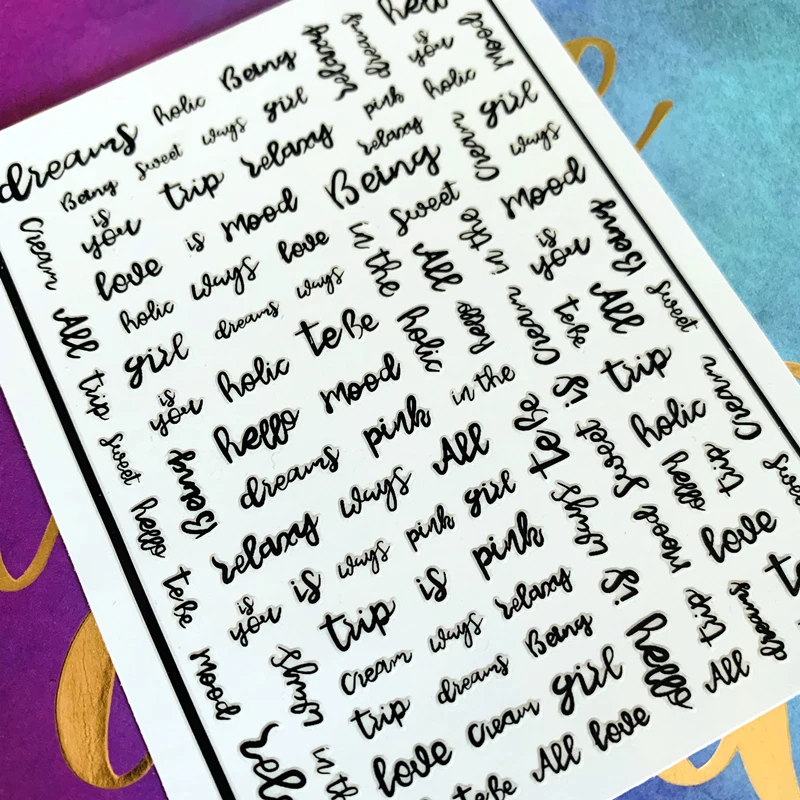 dreams holic Being relaxy dreams
is you mood
Being sweet ways girl pink holic
is you trip relaxy relaxy Cream girl
Cream love is mood Being sweet mood ways
holic ways love in the All in the is you Being
All girl dreams ways te Be holic hello Cream te Be All sweet
trip is you holic mood in the is trip
sweet Being hello pink te Be sweet holic Cream
hello dreams All ways mood hello trip
relaxy ways girl love
te Be is you is ways pink pink is
mood trip is relaxy trip dreams
ways Cream ways Being hello All
trip dreams girl
in love Cream love
te Be All